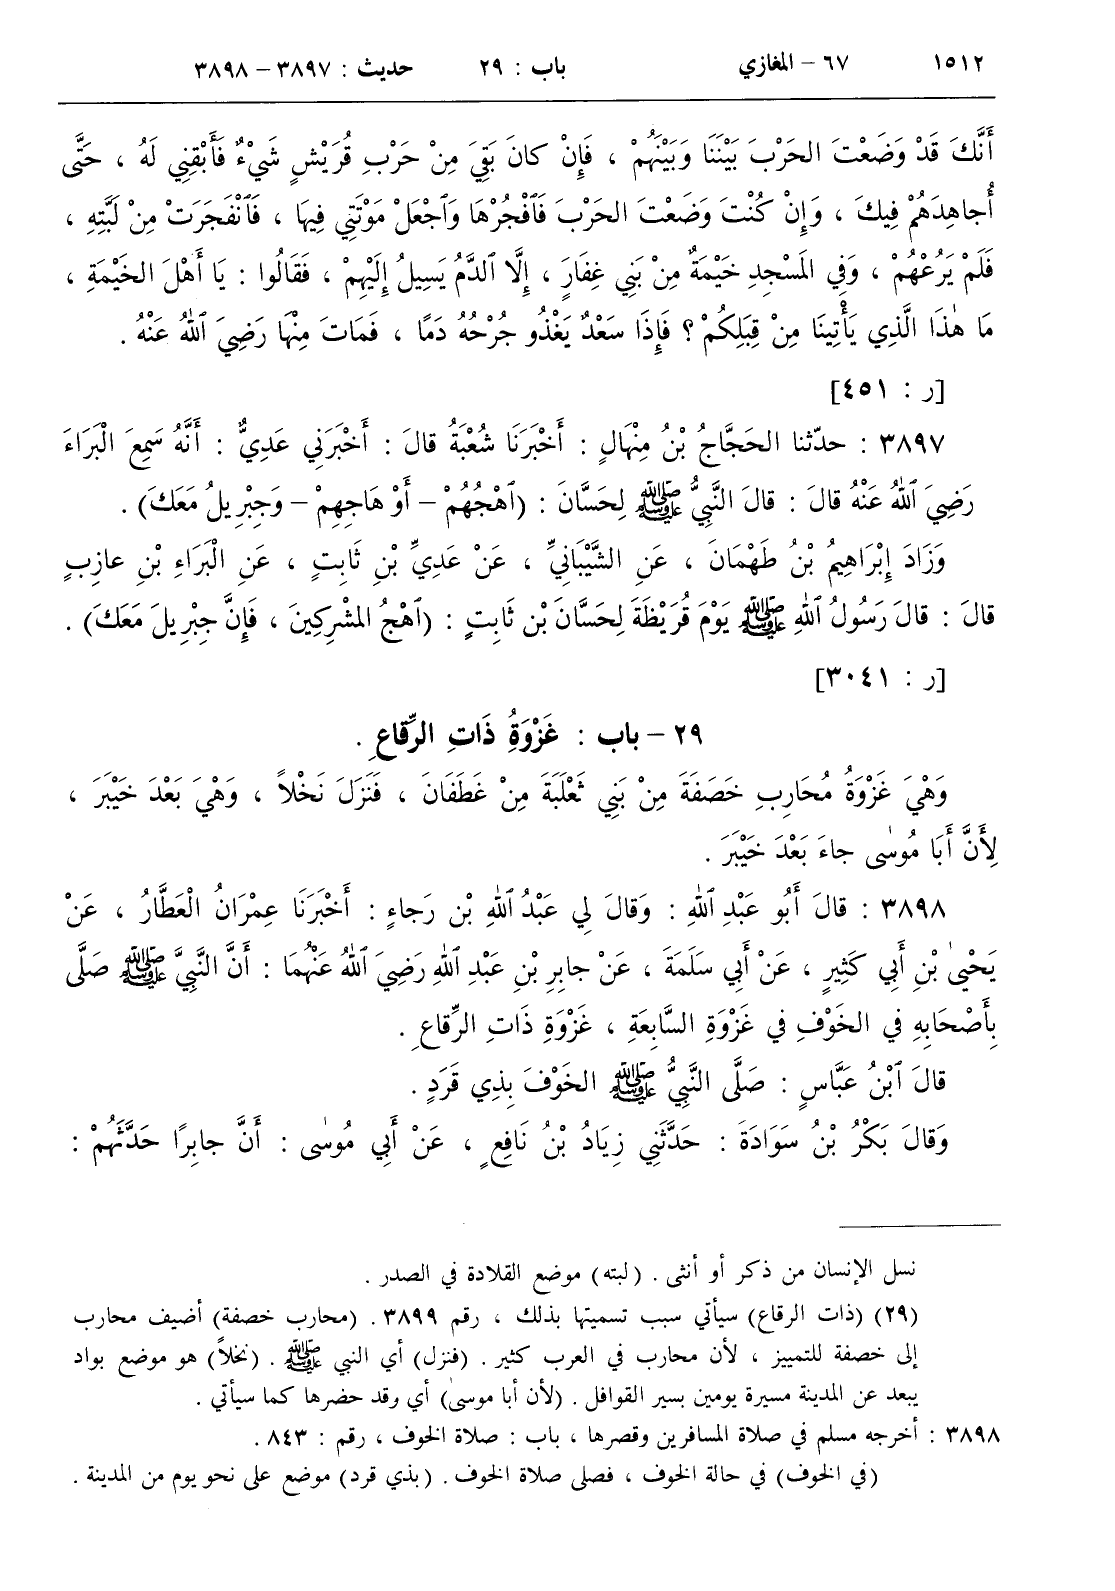 ١٥١٢ ٦٧ – المغازي باب : ٢٩ حديث : ٣٨٩٧ – ٣٨٩٨
أَنَّكَ قَدْ وَضَعْتَ الحَرْبَ بَيْنَنَا وَبَيْنَهُمْ ، فَإِنْ كانَ بَقِيَ مِنْ حَرْبِ قُرَيْشٍ شَيْءٌ فَأَبْقِنِي لَهُ ، حَتَّى
أُجاهِدَهُمْ فِيكَ ، وَإِنْ كُنْتَ وَضَعْتَ الحَرْبَ فَٱفْجُرْهَا وَٱجْعَلْ مَوْتَتِي فِيهَا ، فَٱنْفَجَرَتْ مِنْ لَبَّتِهِ ،
فَلَمْ يَرُعْهُمْ ، وَفِي المَسْجِدِ خَيْمَةٌ مِنْ بَنِي غِفَارٍ ، إِلَّا ٱلدَّمُ يَسِيلُ إِلَيْهِمْ ، فَقَالُوا : يَا أَهْلَ الخَيْمَةِ ،
مَا هٰذَا الَّذِي يَأْتِينَا مِنْ قِبَلِكُمْ ؟ فَإِذَا سَعْدٌ يَغْذُو جُرْحُهُ دَمًا ، فَمَاتَ مِنْهَا رَضِيَ ٱللّٰهُ عَنْهُ .
[ر : ٤٥١]
٣٨٩٧ : حدّثنا الحَجَّاجُ بْنُ مِنْهَالٍ : أَخْبَرَنَا شُعْبَةُ قالَ : أَخْبَرَنِي عَدِيٌّ : أَنَّهُ سَمِعَ الْبَرَاءَ
رَضِيَ ٱللّٰهُ عَنْهُ قالَ : قالَ النَّبِيُّ ﷺ لِحَسَّانَ : (ٱهْجُهُمْ – أَوْ هَاجِهِمْ – وَجِبْرِيلُ مَعَكَ) .
وَزَادَ إِبْرَاهِيمُ بْنُ طَهْمَانَ ، عَنِ الشَّيْبَانِيِّ ، عَنْ عَدِيِّ بْنِ ثَابِتٍ ، عَنِ الْبَرَاءِ بْنِ عازِبٍ
قالَ : قالَ رَسُولُ ٱللّٰهِ ﷺ يَوْمَ قُرَيْظَةَ لِحَسَّانَ بْنِ ثَابِتٍ : (ٱهْجُ المُشْرِكِينَ ، فَإِنَّ جِبْرِيلَ مَعَكَ) .
[ر : ٣٠٤١]
٢٩ – باب : غَزْوَةُ ذَاتِ الرِّقاعِ .
وَهْيَ غَزْوَةُ مُحَارِبِ خَصَفَةَ مِنْ بَنِي ثَعْلَبَةَ مِنْ غَطَفَانَ ، فَنَزَلَ نَخْلاً ، وَهْيَ بَعْدَ خَيْبَرَ ،
لِأَنَّ أَبَا مُوسٰى جاءَ بَعْدَ خَيْبَرَ .
٣٨٩٨ : قالَ أَبُو عَبْدِ ٱللّٰهِ : وَقالَ لِي عَبْدُ ٱللّٰهِ بْنِ رَجاءٍ : أَخْبَرَنَا عِمْرَانُ الْعَطَّارُ ، عَنْ
يَحْيىٰ بْنِ أَبِي كَثِيرٍ ، عَنْ أَبِي سَلَمَةَ ، عَنْ جابِرِ بْنِ عَبْدِ ٱللّٰهِ رَضِيَ ٱللّٰهُ عَنْهُمَا : أَنَّ النَّبِيَّ ﷺ صَلَّى
بِأَصْحَابِهِ فِي الخَوْفِ فِي غَزْوَةِ السَّابِعَةِ ، غَزْوَةِ ذَاتِ الرِّقاعِ .
قالَ ٱبْنُ عَبَّاسٍ : صَلَّى النَّبِيُّ ﷺ الخَوْفَ بِذِي قَرَدٍ .
وَقالَ بَكْرُ بْنُ سَوَادَةَ : حَدَّثَنِي زِيَادُ بْنُ نَافِعٍ ، عَنْ أَبِي مُوسٰى : أَنَّ جابِرًا حَدَّثَهُمْ :
نسل الإنسان من ذكر أو أنثى . (لبته) موضع القلادة في الصدر .
(٢٩) (ذات الرقاع) سيأتي سبب تسميتها بذلك ، رقم ٣٨٩٩ . (محارب خصفة) أضيف محارب
إلى خصفة للتمييز ، لأن محارب في العرب كثير . (فنزل) أي النبي ﷺ . (نخلاً) هو موضع بواد
يبعد عن المدينة مسيرة يومين بسير القوافل . (لأن أبا موسىٰ) أي وقد حضرها كما سيأتي .
٣٨٩٨ : أخرجه مسلم في صلاة المسافرين وقصرها ، باب : صلاة الخوف ، رقم : ٨٤٣ .
(في الخوف) في حالة الخوف ، فصلى صلاة الخوف . (بذي قرد) موضع على نحو يوم من المدينة .